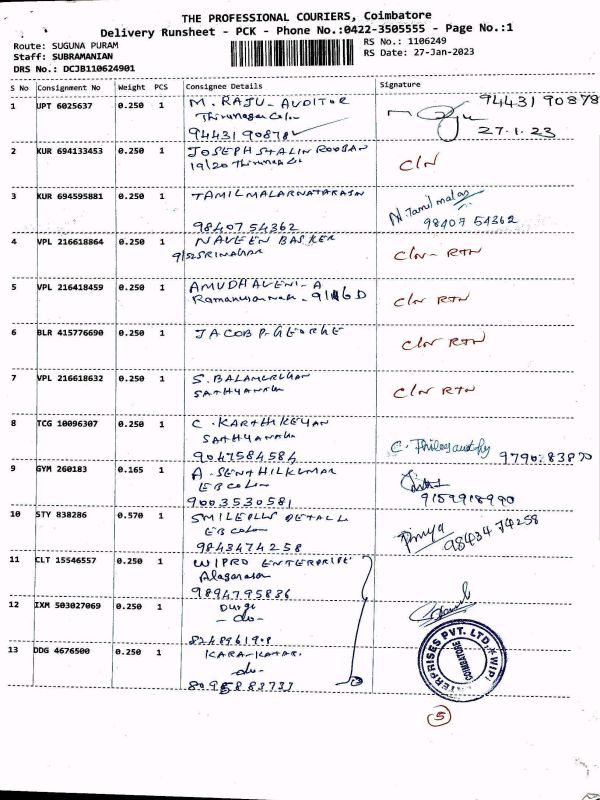 THE PROFESSIONAL COURIERS, Coimbatore
Delivery Runsheet - PCK - Phone No.:0422-3505555 - Page No.:1
Route: SUGUNA PURAM
RS No.: 1106249
Staff: SUBRAMANIAN
RS Date: 27-Jan-2023
DRS No.: DCJB110624901
S No Consignment No Weight PCS Consignee Details Signature
1 UPT 6025637 0.250 1 M. RAJU - AUDITOR
94431 90878
94431 90878
27.1.23
2 KUR 694133453 0.250 1 JOSEPH STALIN ROOBAN
19/20
C/N
3 KUR 694595881 0.250 1 TAMILMALARNATARAJN
98407 54362
N. Tamilmalar
98407 54362
4 VPL 216618864 0.250 1 NAVEEN BASKER
9/52 SRINAGAR
C/N - RTN
5 VPL 216418459 0.250 1 AMUDHAVENI - A
C/N RTN
6 BLR 415776690 0.250 1 JACOB P. GEORGE
C/N RTN
7 VPL 216618632 0.250 1 S. BALAMURUGAN
C/N RTN
8 TCG 10096307 0.250 1 C. KARTHIKEYAN
9047584584
9790. 83870
9 GYM 260183 0.165 1 A. SENTHILKUMAR
EB Colon
9003530581
9159918990
10 STY 838286 0.570 1
EB Colon
9843474258
Priya
98434 74258
11 CLT 15546557 0.250 1 WIPRO ENTERPRISE
9894795886
12 IXM 503027069 0.250 1
-do-
13 DDG 4676500 0.250 1
-do-
ENTERPRISES PVT. LTD. * WIPRO
COIMBATORE
5